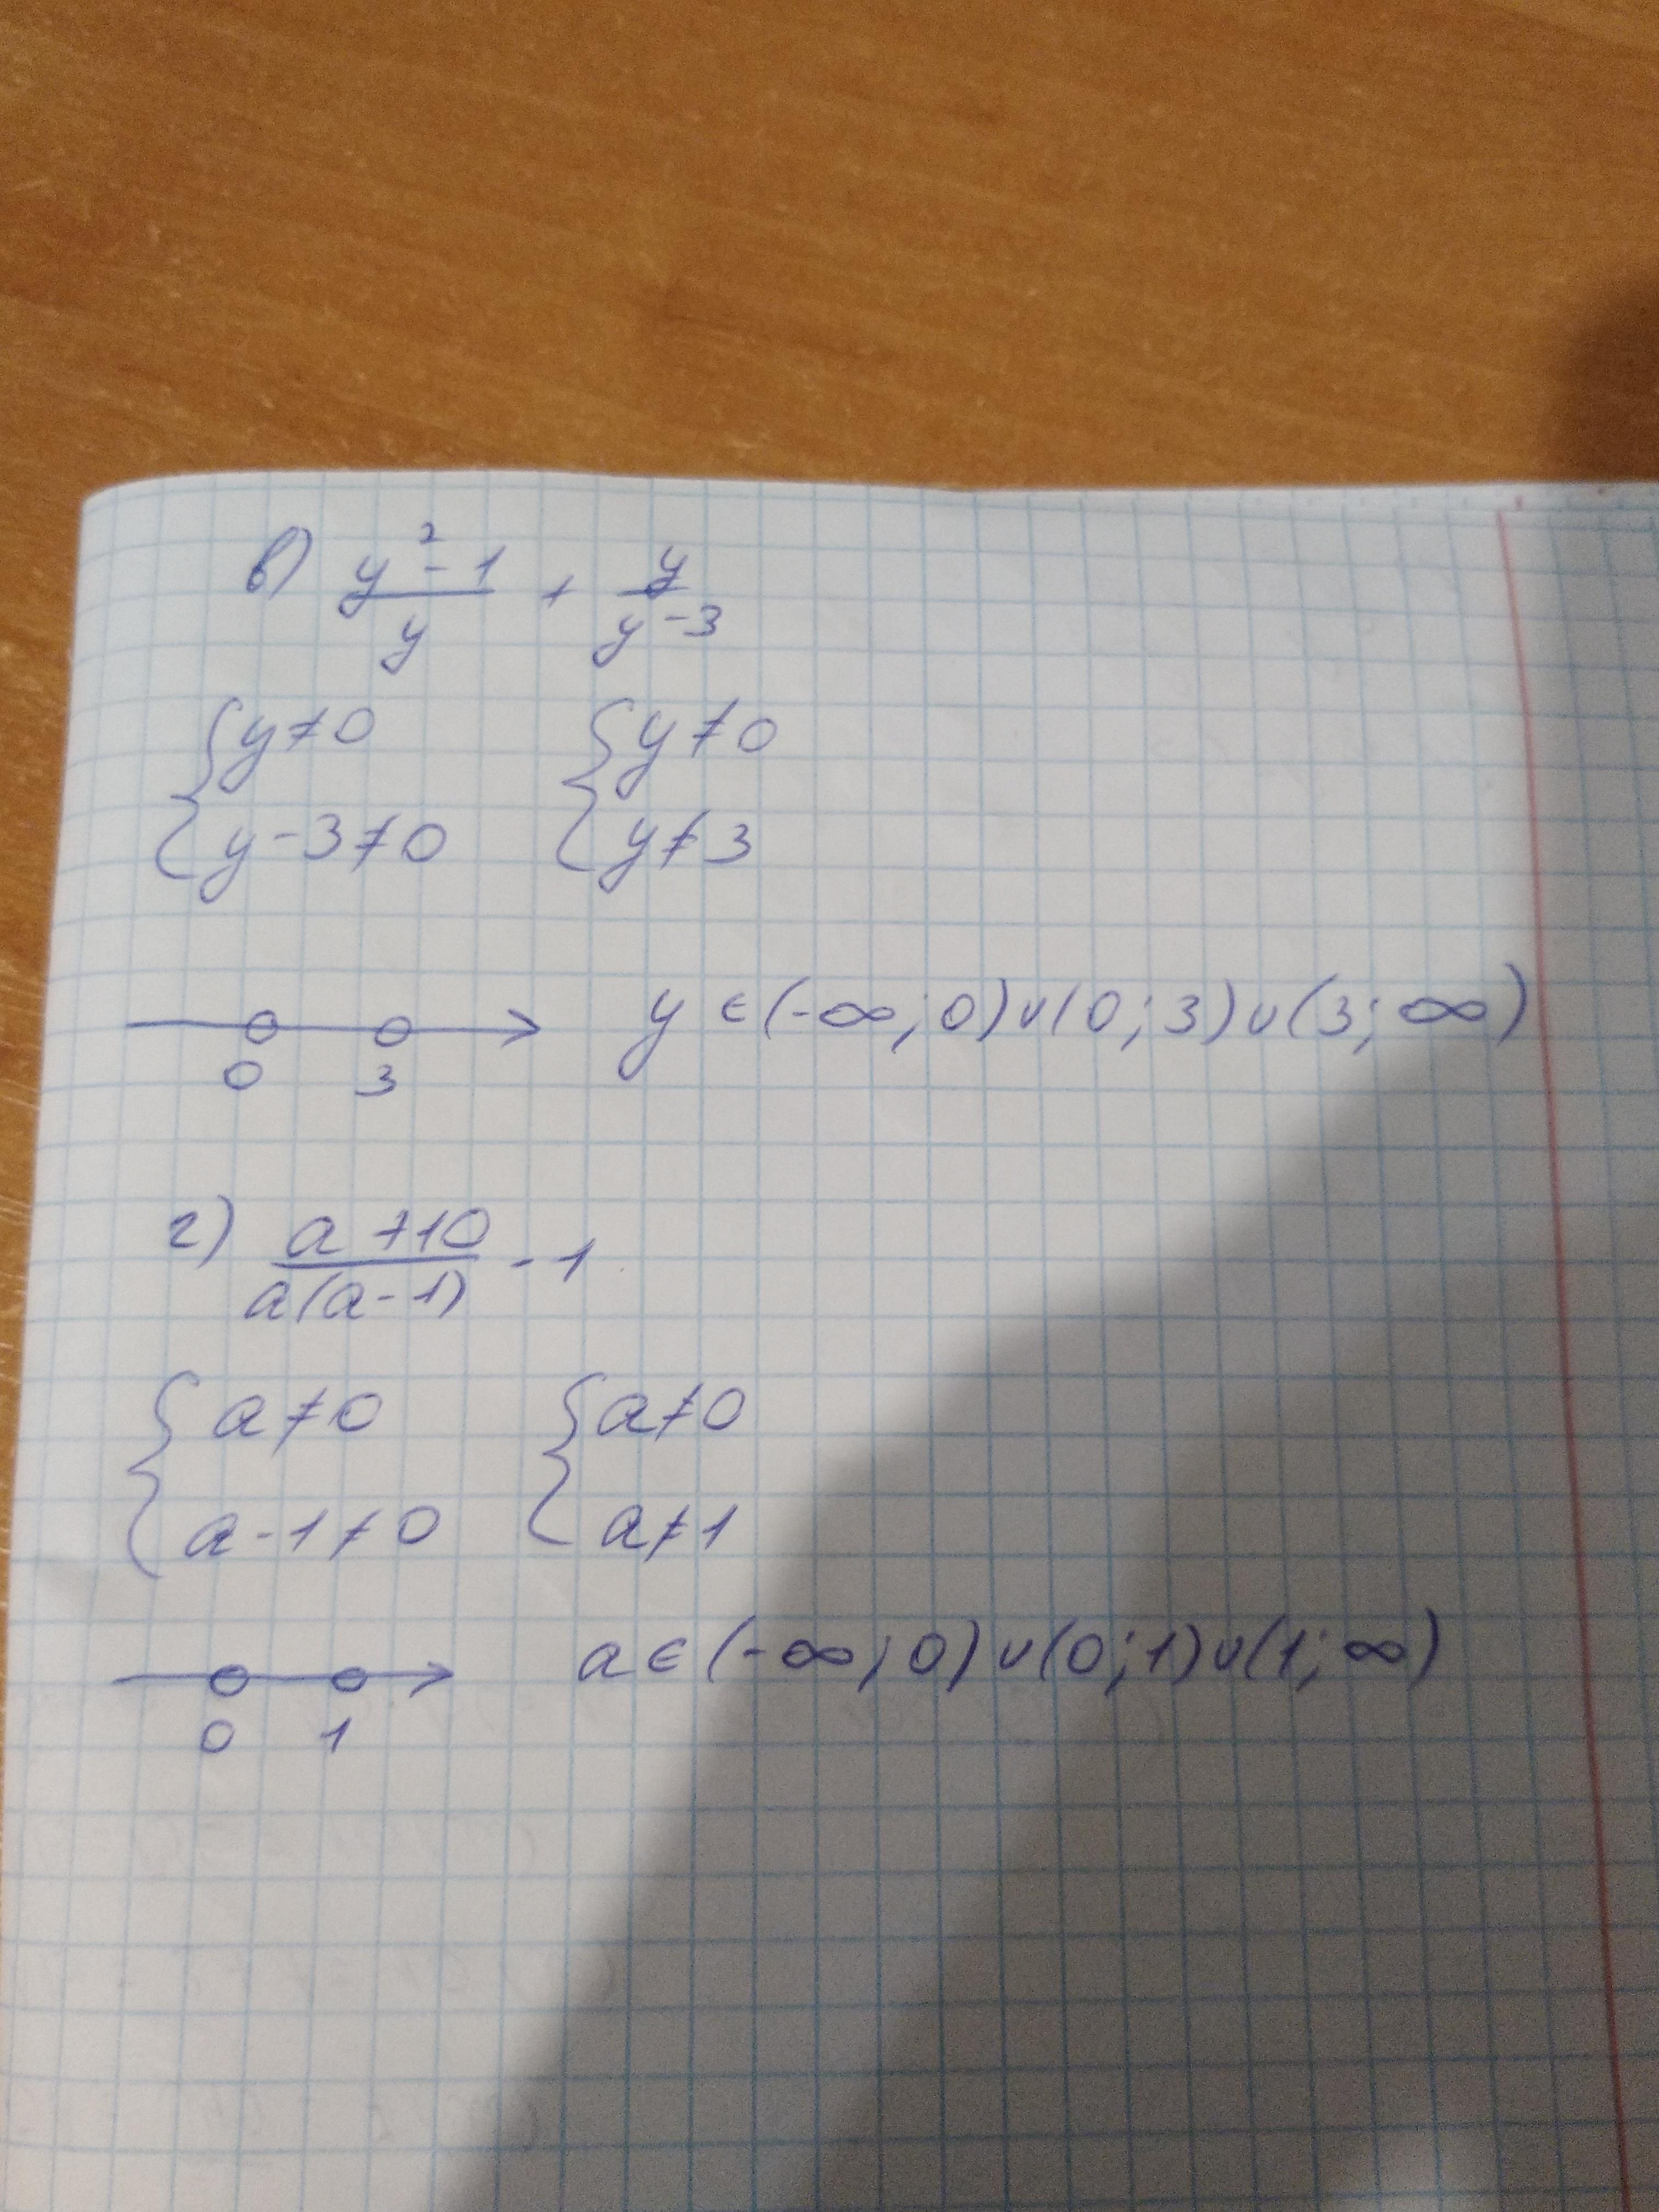 в) (y² - 1)/y + y/(y - 3)
{ y ≠ 0 { y ≠ 0
{ y - 3 ≠ 0 { y ≠ 3
0 3 y ∈ (-∞; 0) ∪ (0; 3) ∪ (3; ∞)
г) (a + 10)/(a(a - 1)) - 1
{ a ≠ 0 { a ≠ 0
{ a - 1 ≠ 0 { a ≠ 1
0 1 a ∈ (-∞; 0) ∪ (0; 1) ∪ (1; ∞)